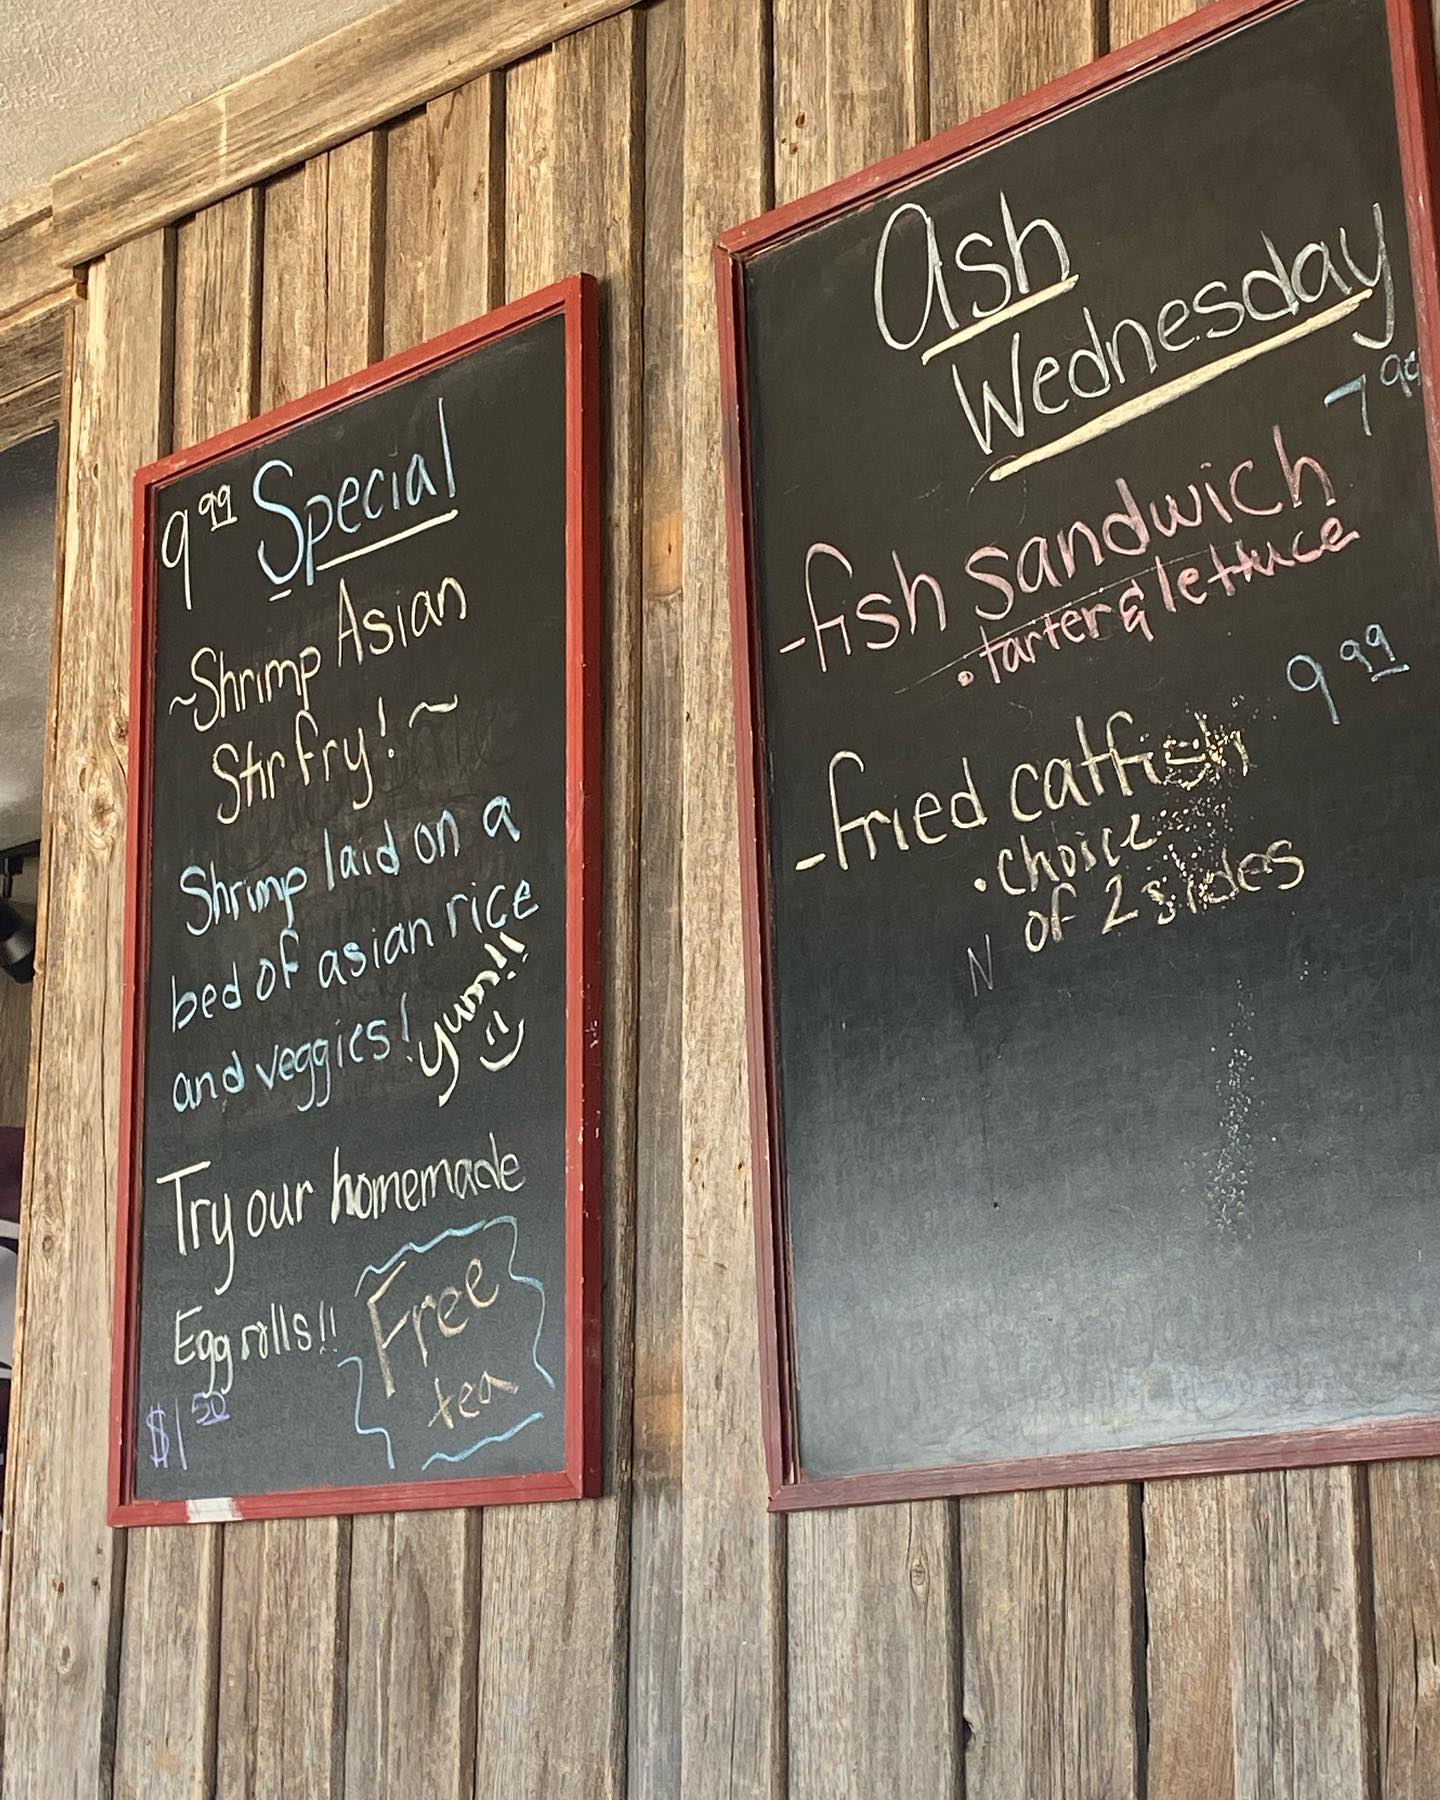 9.99 Special
~Shrimp Asian
Stir fry! ~
Shrimp laid on a
bed of asian rice
and veggies!
yum!!
Try our homemade
Egg rolls!!
$1 50
Free
tea
Ash
Wednesday
7 99
-fish sandwich
• tarter & lettuce
9 99
-fried catfish
• choice
of 2 sides
N